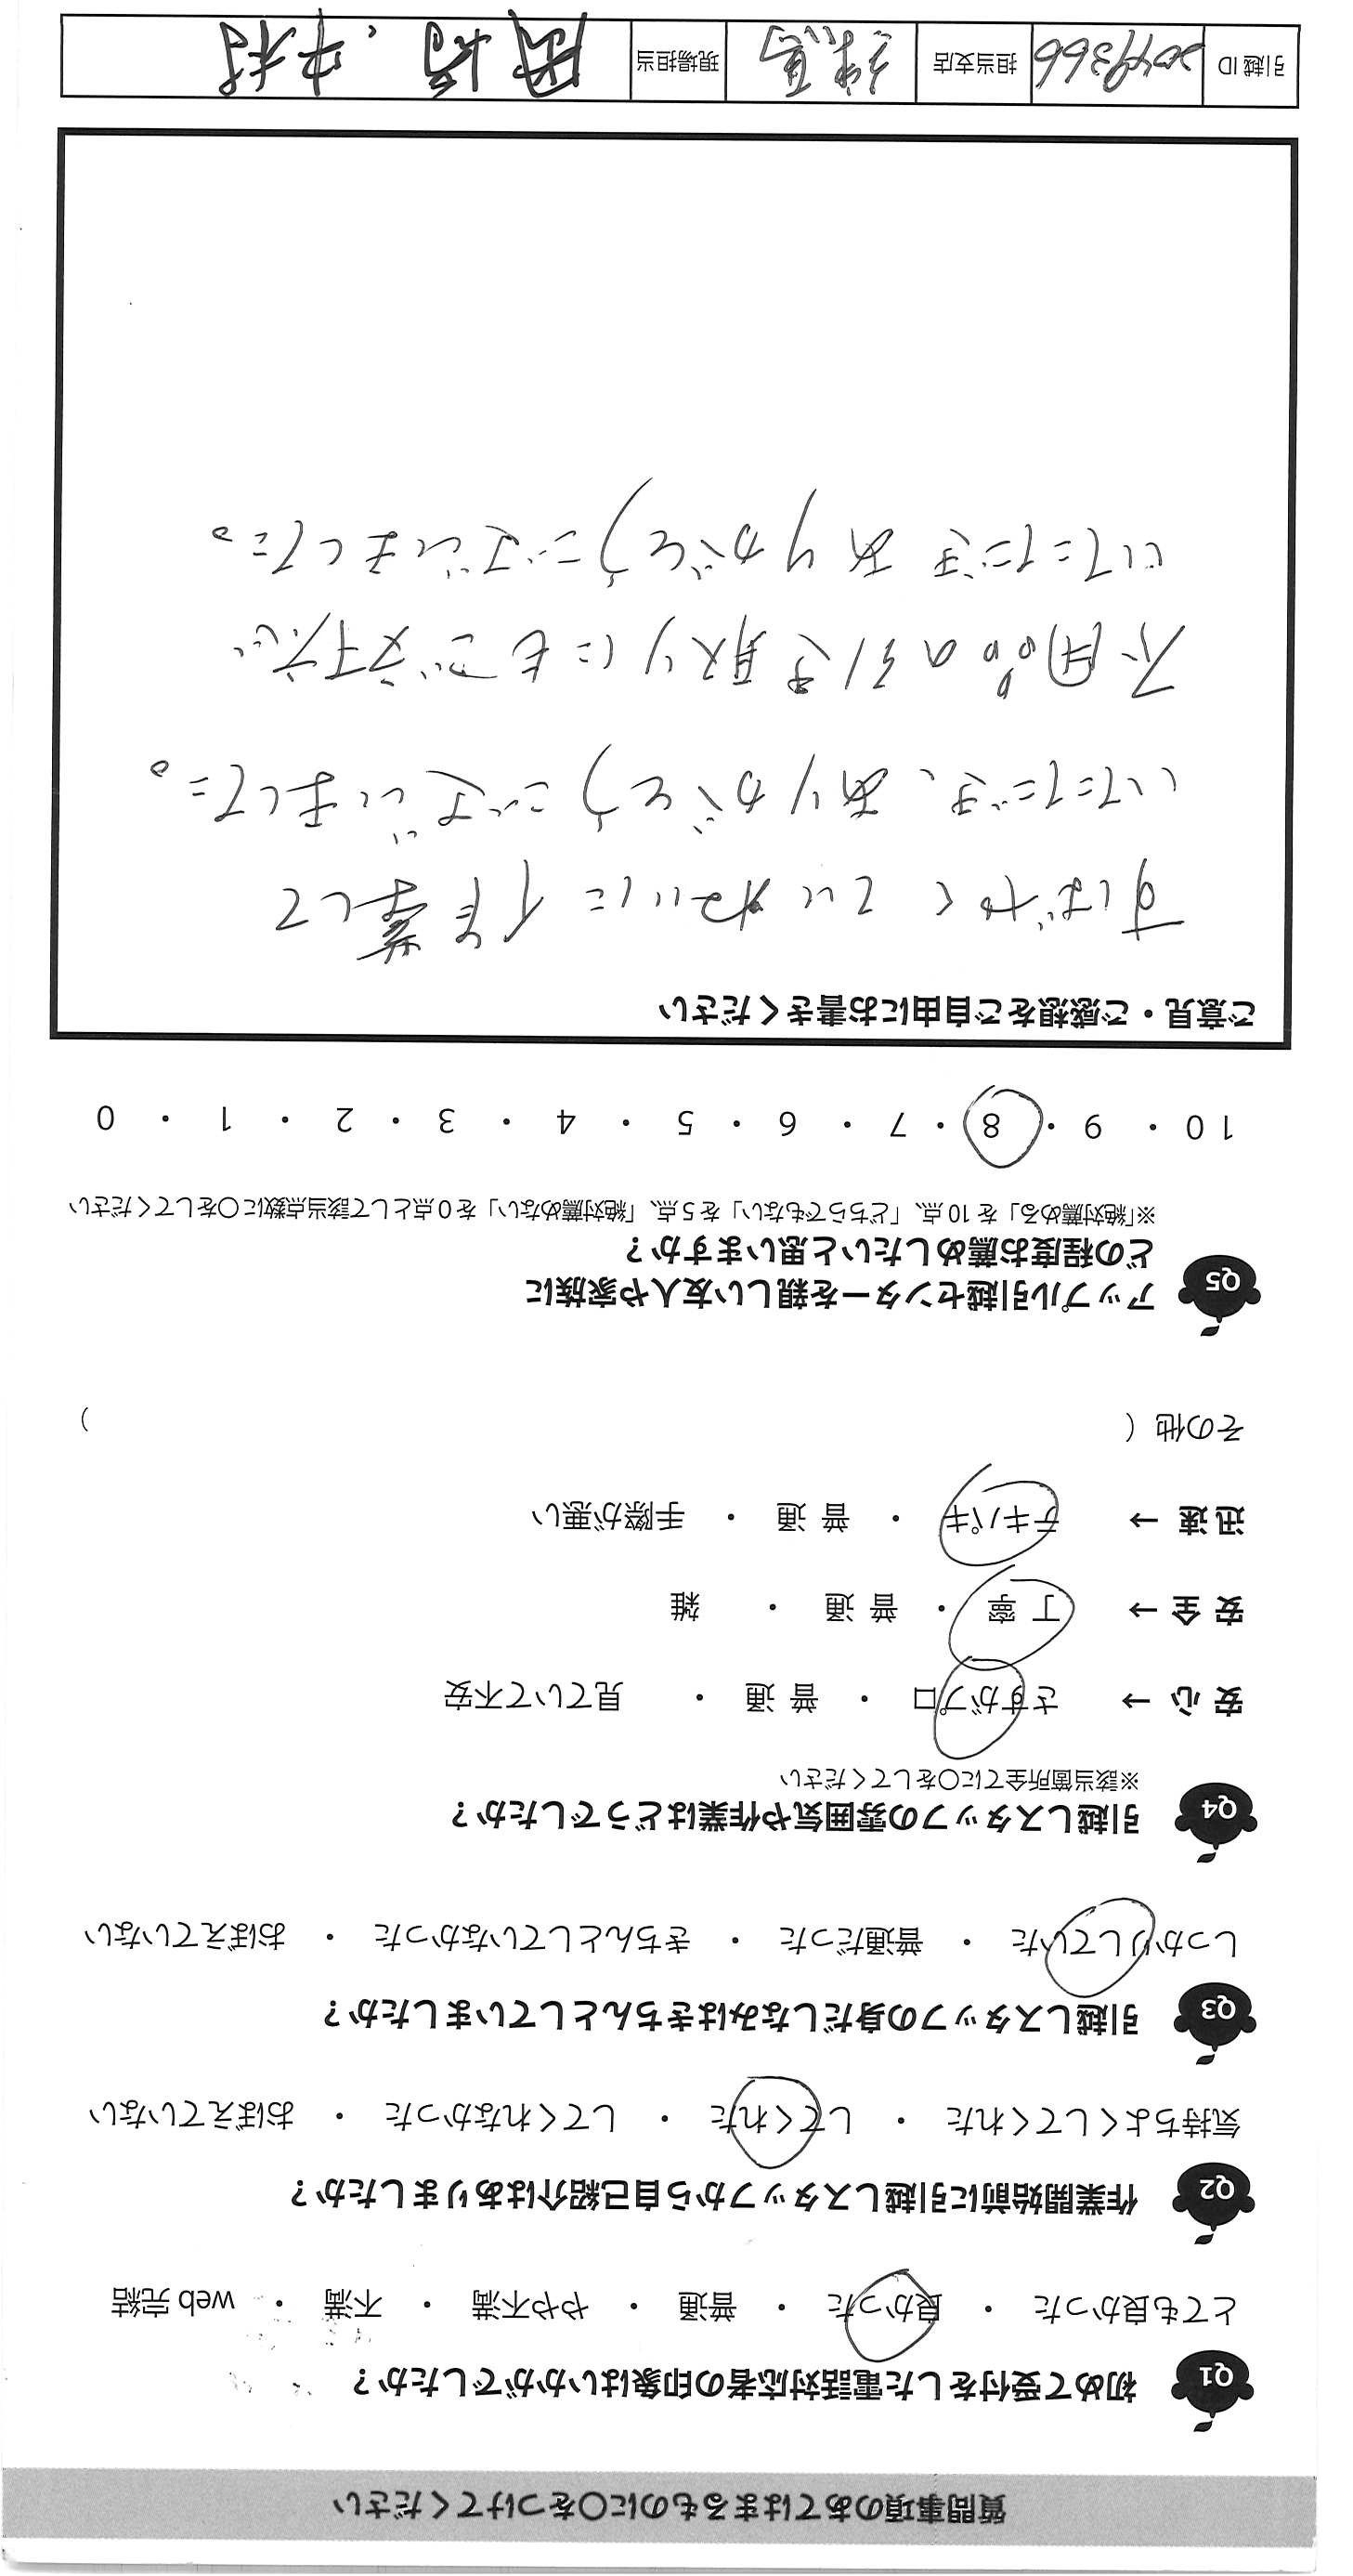 質問事項のあてはまるものに○をつけてください
Q1 初めて受付をした電話対応者の印象はいかがでしたか？
とても良かった ・ 良かった ・ 普通 ・ やや不満 ・ 不満 ・ web 完結
Q2 作業開始前に引越しスタッフから自己紹介はありましたか？
気持ちよくしてくれた ・ してくれた ・ してくれなかった ・ おぼえていない
Q3 引越しスタッフの身だしなみはきちんとしていましたか？
しっかりしていた ・ 普通だった ・ きちんとしていなかった ・ おぼえていない
Q4 引越しスタッフの雰囲気や作業はどうでしたか？
※該当箇所全てに○をしてください
安 心 → さすがプロ ・ 普 通 ・ 見ていて不安
安 全 → 丁 寧 ・ 普 通 ・ 雑
迅 速 → テキパキ ・ 普 通 ・ 手際が悪い
その他（ ）
Q5 アップル引越センターを親しい友人や家族に
どの程度お薦めしたいと思いますか？
※「絶対薦める」を 10 点、「どちらでもない」を 5 点、「絶対薦めない」を 0 点として該当点数に○をしてください
10 ・ 9 ・ 8 ・ 7 ・ 6 ・ 5 ・ 4 ・ 3 ・ 2 ・ 1 ・ 0
ご意見・ご感想をご自由にお書きください
すばやくていねいに作業して
いただき、ありがとうございました。
不用品の引き取りにもご対応
いただきありがとうございました。
引越 ID 2049366 担当支店 練馬 現場担当 、中村